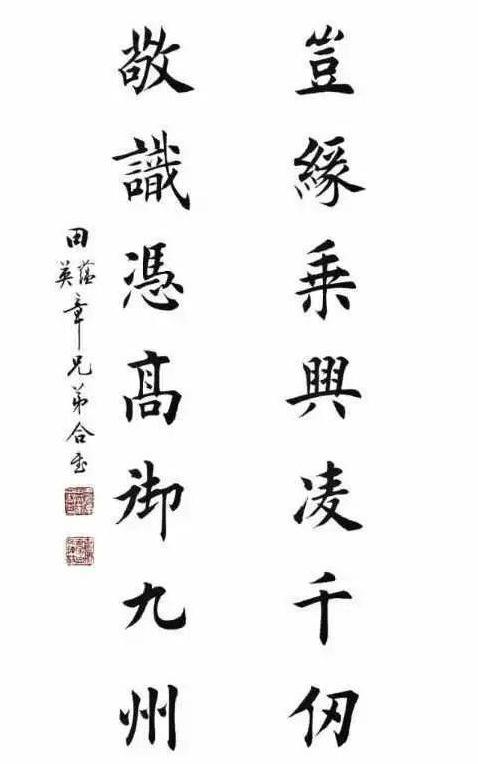 豈緣乘興凌千仞
敬識憑高御九州
田蘊英章兄弟合書